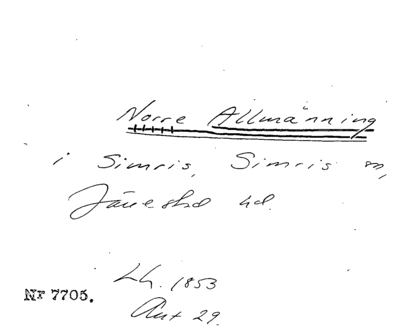 Norre Allmänning
i Simris, Simris sn,
Järestad hd.
Lh. 1853
Ant 29.
Nr 7705.